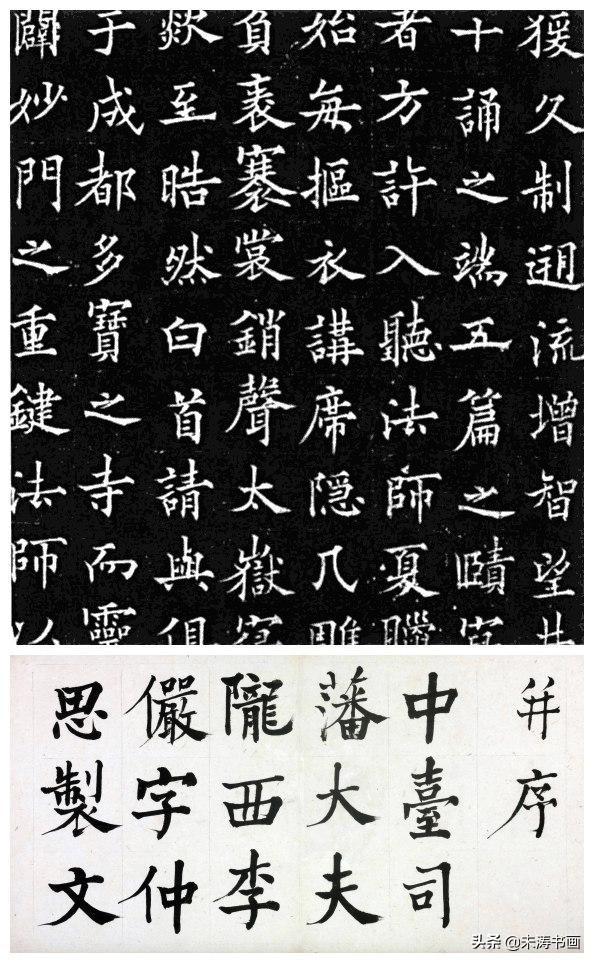 猨久制迴流增智望井
十誦之端五篇之賾
者方許入聽法師夏臘
始每摳衣講席隱几雕
負袠褰裳銷聲太嶽
歘至晧然白首請與俱
于成都多寶之寺而靈
闢妙門之重鍵法師以
并序
中臺司
藩大夫
隴西李
儼字仲
思製文
头条 @未涛书画